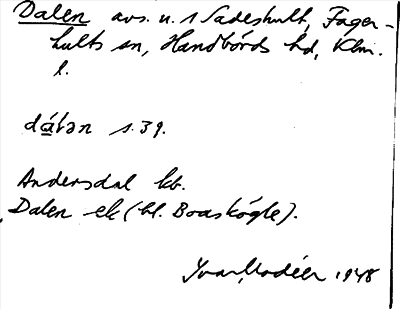 Dalen avs. u. 1 Sadeshult, Fager-
hults sn, Handbörds hd, Klm.
l.
dɑ́lən s. 39.
Andersdal kb.
Dalen ek (bl. Boaskögle).
Ivar Modéer 1948